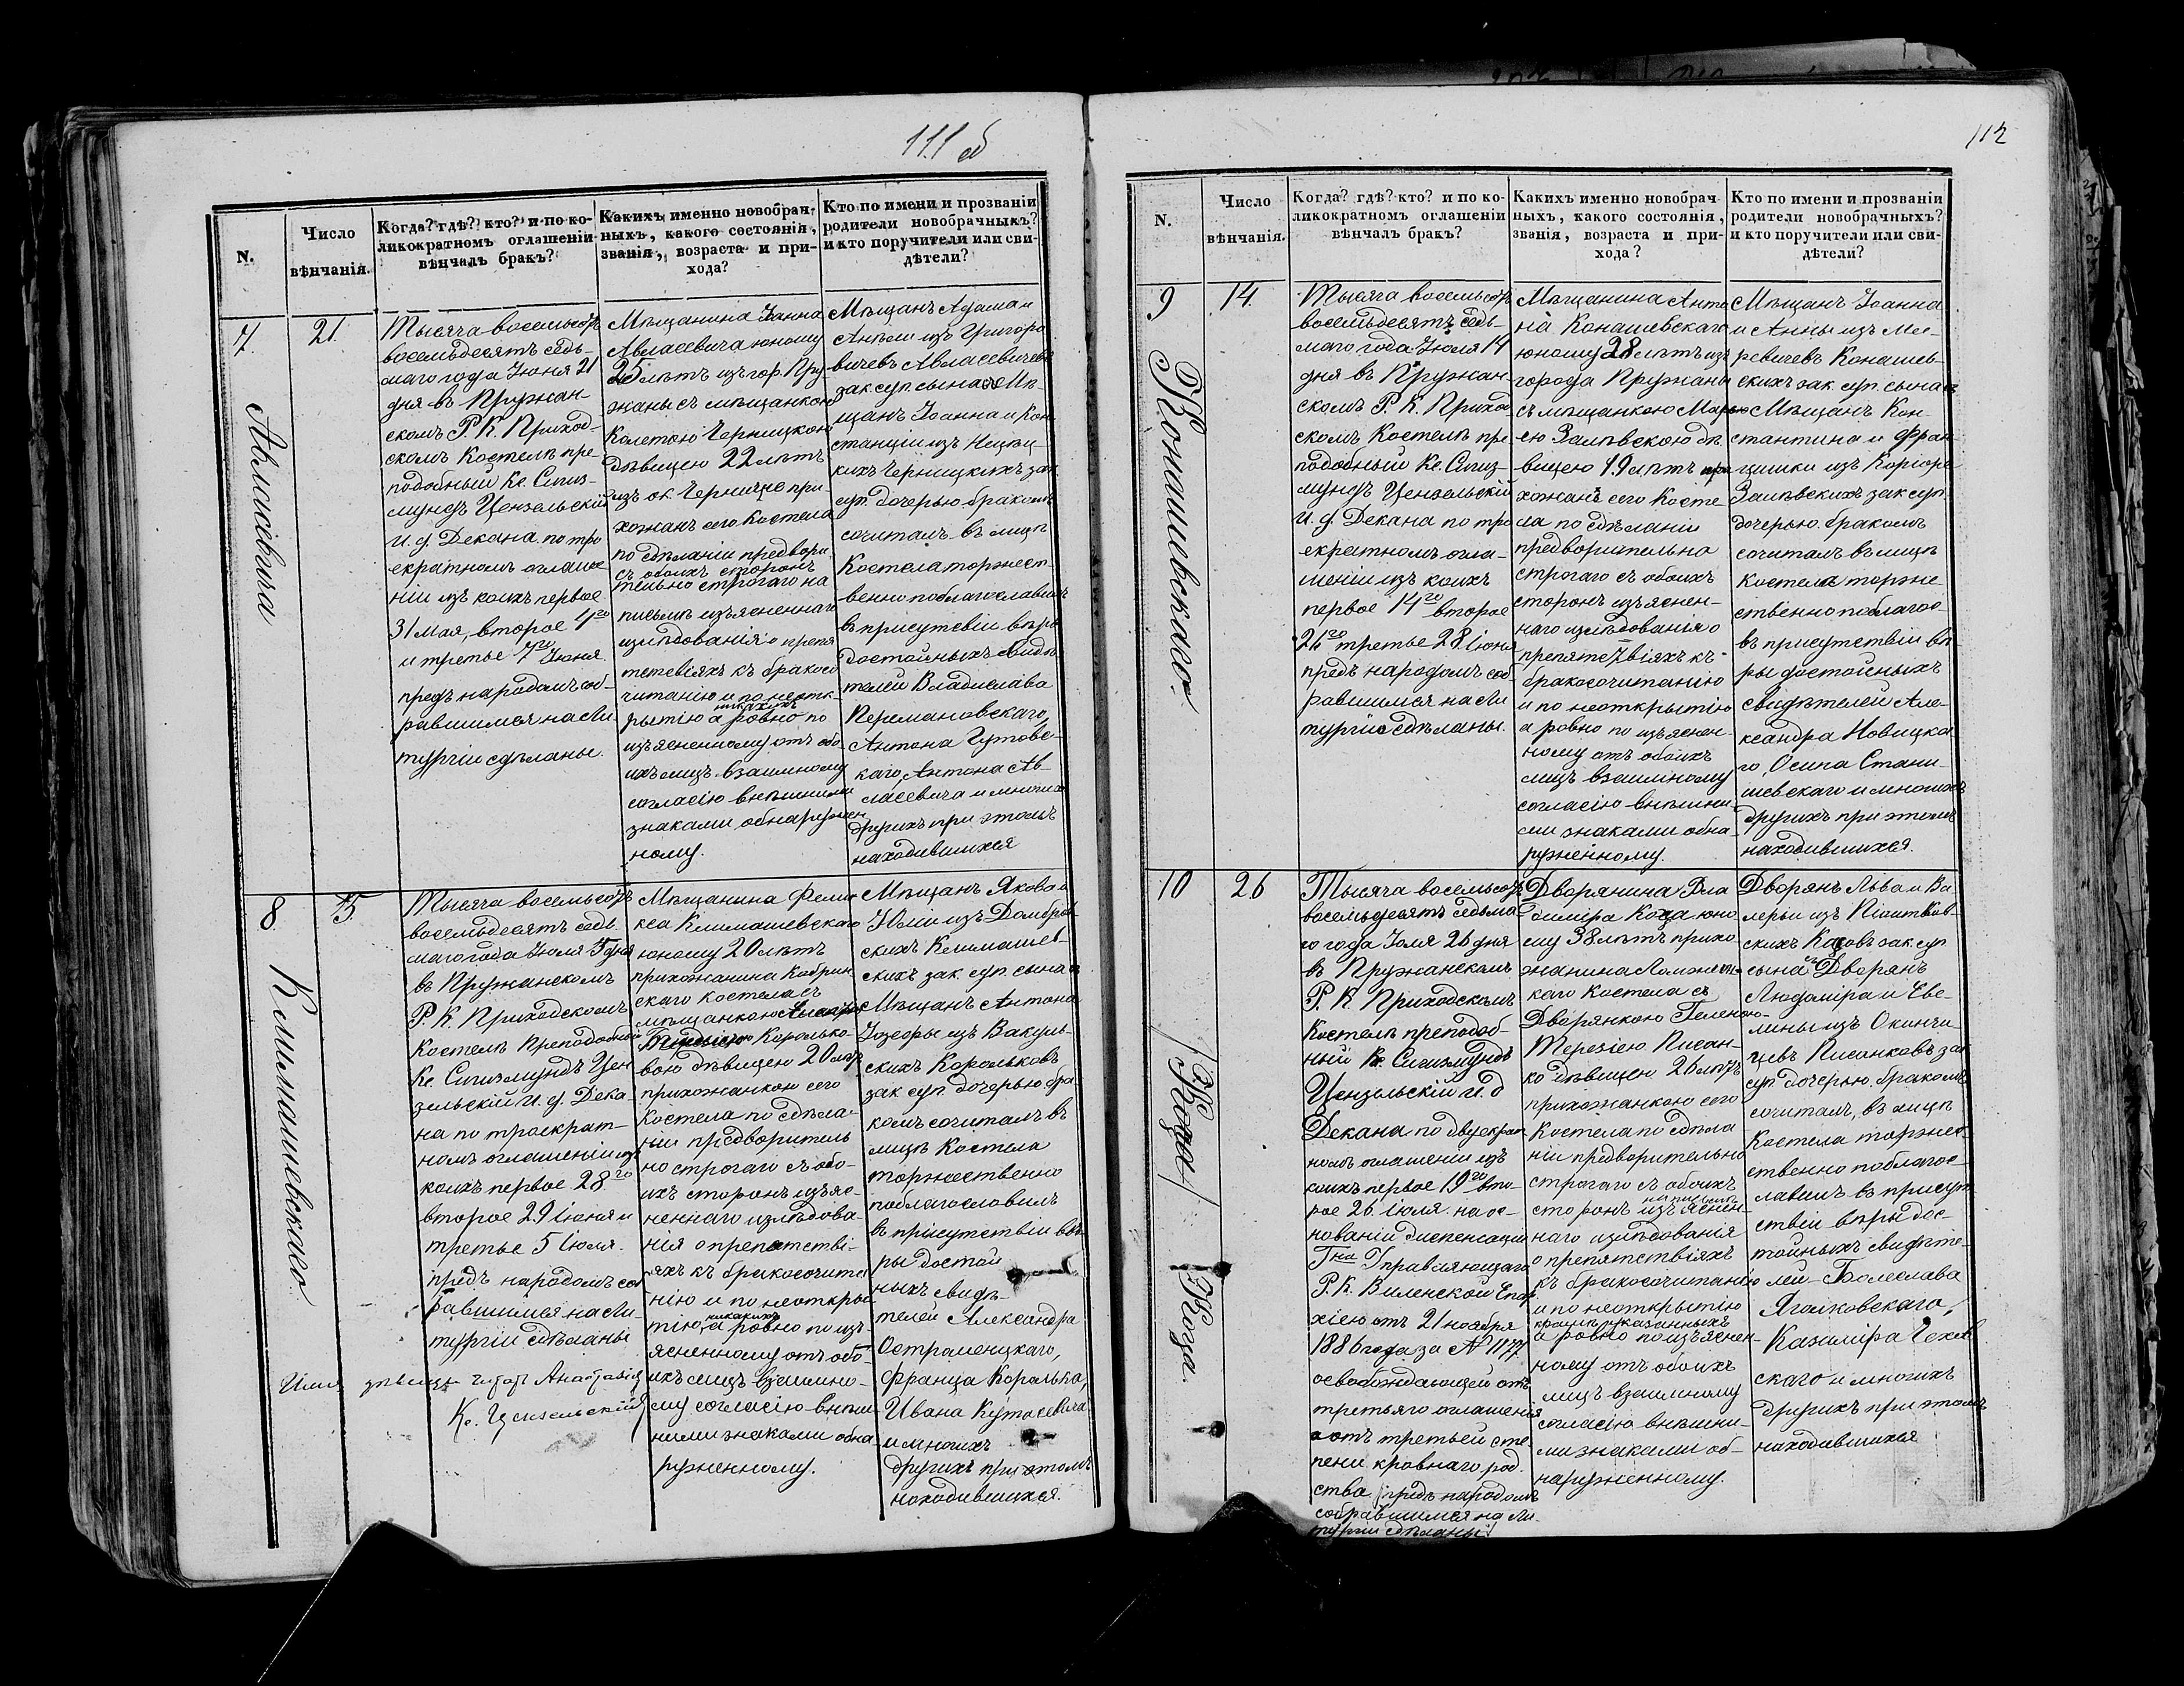 111 об
N.
Число
вѣнчанія.
Когда? гдѣ? кто? и по ко-
ликократномъ оглашеніи
вѣнчалъ бракъ?
Какихъ именно новобрач-
ныхъ, какого состоянія,
званія, возраста и при-
хода?
Кто по имени и прозваніи
родители новобрачныхъ?
и кто поручители или сви-
дѣтели?
7.
Авласевича
21.
Тысяча восемьсотъ
восемьдесятъ седь-
маго года Іюня 21
дня въ Пружан-
скомъ Р. К. Приход-
скомъ Костелѣ пре
подобный Кс. Сигиз-
мундъ Цензельскій
И. д. Декана по тро
екратномъ оглаше
ніи изъ коихъ первое
31 Мая, второе 4го
и третье 7го Іюня.
предъ народомъ соб-
равшимся на Ли
тургіи сдѣланы.
Мѣщанина Іоанна
Авласевича юношу
25 лѣтъ изъ гор. Пру-
жаны съ мѣщанкою
Колетою Черницкою
дѣвицею 22 лѣтъ
изъ ок. Чернично при
хожанъ сего Костела
по сдѣланіи предвори
съ обоихъ сторонъ
тельно строгаго на
письмѣ изъясненнаго
изслѣдованія о препя
тствіяхъ къ бракосо
читанію и по неотк-
никакихъ
рытію а ровно по
изъясненному отъ обо
ихъ лицъ взаимному
согласію внѣшними
знаками обнаружен
ному.
Мѣщанъ Адама и
Анели изъ Григоро
вичевъ Авласевичевъ
зак. суп. сына съ Мѣ-
щанъ Іоанна и Кон
станціи изъ Нецец-
кихъ Черницкихъ зак
суп. дочерью бракомъ
сочиталъ въ лицѣ
Костела торжест-
венно поблагославилъ
въ присутсвіи вѣро
достойныхъ свидѣ
телей Владислава
Пермановскаго,
Антона Гутовс-
каго, Антона Ав-
ласевича и многихъ
другихъ при этомъ
находившихся
8.
Климашевскаго
5.
Тысяча восемьсотъ
восемьдесятъ седь-
маго года Іюля 5 дня
въ Пружанскомъ
Р. К. Приходскомъ
Костелѣ Преподобный
Кс. Сигизмундъ Цен
зельскій И. д. Дека-
на по троекрат-
номъ оглашеніи изъ
коихъ первое 28го
второе 29 Іюня и
третье 5 Іюля.
предъ народомъ соб
равшимся на Ли-
тургіи сдѣланы
Имя дѣвицы читать Анастасія
Кс. Цензельскій
Мѣщанина Фели
кса Климашевскаго
юношу 20 лѣтъ
прихожанина Кобрин
скаго костела съ
мѣщанкою
Королько-
вою дѣвицею 20 лѣтъ
прихожанкою сего
Костела по сдѣла-
ніи предворитель
но строгаго съ обо-
ихъ сторонъ изъяс-
неннаго изслѣдова-
нія о препятстві-
яхъ къ бракосочета
нію и по неоткры-
никакихъ
тію, а ровно по изъ-
ясненному отъ обо-
ихъ лицъ взаимно-
му согласію внѣш-
ними знаками обна-
руженному.
Мѣщанъ Якова и
Юліи изъ Домбров-
скихъ Климашев-
скихъ зак. суп. сына съ
Мѣщанъ Антона
Іозефы изъ Вакуль-
скихъ Корольковъ
зак суп. дочерью бра-
комъ сочиталъ въ
лицѣ Костела
торжественно
поблагословилъ
въ присутствіи вѣ-
ры достой
ныхъ свидѣ-
телей Александра
Остраменцкаго,
Франца Королька,
Ивана
и многихъ
другихъ при этомъ
находившихся.
112
N.
Число
вѣнчанія.
Когда? гдѣ? кто? и по ко-
ликократномъ оглашеніи
вѣнчалъ бракъ?
Какихъ именно новобрач-
ныхъ, какого состоянія,
званія, возраста и при-
хода?
Кто по имени и прозваніи
родители новобрачныхъ?
и кто поручители или сви-
дѣтели?
9
Конашевскаго.
14.
Тысяча восемьсотъ
восемьдесятъ седь-
маго года Іюля 14
дня въ Пружан-
скомъ Р. К. Приход
скомъ Костелѣ пре
подобный Кс. Сигиз-
мундъ Цензельскій
И. д. Декана по тро
екратномъ огла-
шеніи изъ коихъ
первое 14го второе
21го третье 28 Іюня
предъ народомъ соб
равшимся на Ли
тургіи сдѣланы.
Мѣщанина Анто
нія Конашевскаго
юношу 28 лѣтъ изъ
города Пружаны
съ мѣщанкою Марьею
ею Заливскою дѣ
вицею 19 лѣтъ при
хожанъ сего Косте
ла по сдѣланіи
предворительно
строгаго съ обоихъ
сторонъ изъяснен-
наго изслѣдованья о
препятствіяхъ къ
бракосочитанію
и по неоткрытію
а ровно по изъяснен-
ному отъ обоихъ
лицъ взаимному
согласію внѣшни-
ми знаками обна-
руженному.
Мѣщанъ Іоанна
и Анны изъ Ми-
ревичевъ Конашев-
скихъ зак. суп. сына съ
Мѣщанъ Кон-
стантина и Фран
цишки изъ
Заливскихъ зак суп.
дочерью бракомъ
сочиталъ въ лицѣ
Костела торже
ственно поблагос-
въ присутствіи вѣ
ры достойныхъ
свидѣтелей Але-
ксандра Новицка
го, Осипа Стани-
шевскаго и многихъ
другихъ при этомъ
находившихся.
10
/Коца/ Коца
26
Тысяча восемьсотъ
восемьдесятъ седьма
го года Іюля 26 дня
въ Пружанскомъ
Р. К. Приходскомъ
Костелѣ преподоб-
ный Кс. Сигизмундъ
Цензельскій И. д
Декана по двухкрат-
номъ оглашеніи изъ
коихъ первое 19го вто-
рое 26 Іюля. на ос-
нованіи диспенсаціи
Гна Управляющаго
Р. К. Виленской Епар
хіею отъ 21 ноября
1886 года за № 1177
освобождающей отъ
третьяго оглашенія
и отъ третьей сте-
пени кровнаго род
ства /предъ народомъ
собравшимся на Ли-
тургіи сдѣланы/
Дворянина Вла
диміра Коца юно
шу 38 лѣтъ прихо
жанина
каго Костела съ
Дворянкою Геленою-
Терезіею Писан-
ко дѣвицею 26 лѣтъ
прихожанкою сего
Костела по сдѣла
ніи предворительно
строгаго съ обоихъ
на письмѣ
сторонъ изъяснен-
наго изслѣдованія
о препятствіяхъ
къ бракосочитанію
и по неоткрытію
кромѣ указанныхъ
а ровно по изъяснен-
ному отъ обоихъ
лицъ взаимному
согласію внѣшни-
ми знаками об-
наруженному.
Дворянъ Льва и Ва
леріи изъ Піонтков-
скихъ Коцовъ зак. суп
сына съ Дворянъ
Людоміра и Еве-
лины изъ Окинчи-
цевъ Писанковъ зак
суп. дочерью. бракомъ
сочиталъ, въ лицѣ
Костела торжес-
ственно поблагос-
лавилъ въ присут
ствіи вѣры дос-
тойныхъ свидѣте-
лей Болеслава
Ягалковскаго,
Казиміра Чехов
скаго и многихъ
другихъ при этомъ
находившихся